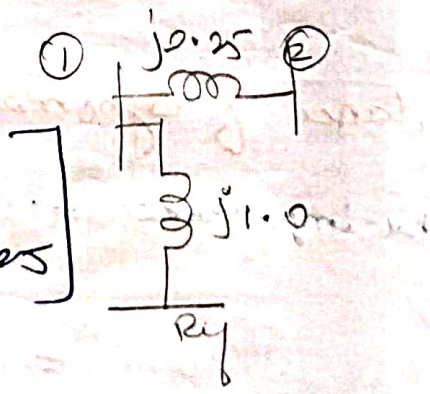 ① j0.25 ②
j1.0
25
Ref